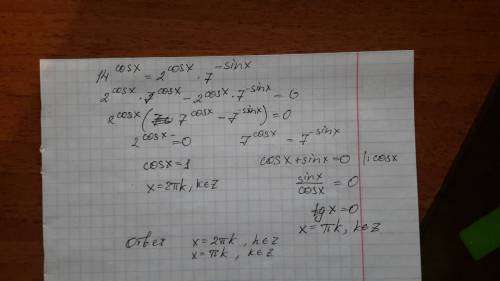 14^cosx = 2^cosx · 7^-sinx
2^cosx · 7^cosx - 2^cosx · 7^-sinx = 0
2^cosx ( 7^cosx - 7^-sinx) = 0
2^cosx = 0
7^cosx = 7^-sinx
cosx = 1
cosx + sinx = 0 |: cosx
x = 2πk, k∈Z
sinx/cosx = 0
tgx = 0
x = πk, k∈Z
Ответ x = 2πk, k∈Z
x = πk, k∈Z